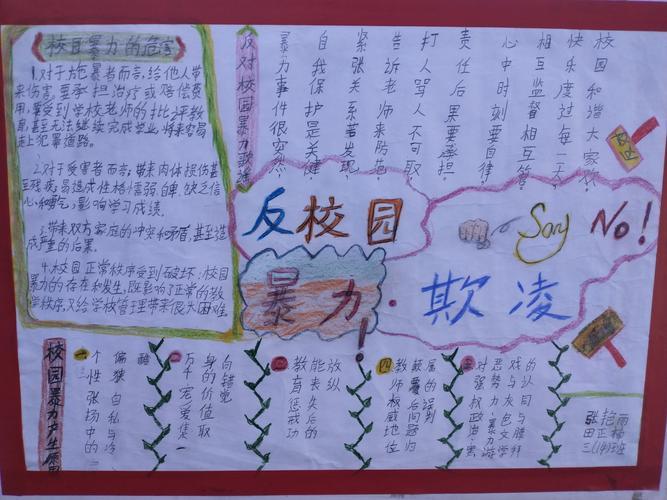 校园暴力的危害
1.对于施暴者而言,给他人带
来伤害,要承担治疗或赔偿费
用,要受到学校老师的批评教
育,甚至无法继续完成学业,将来容易
走上犯罪道路。
2.对于受害者而言,带来肉体损伤甚
至残疾,易造成性格懦弱自卑,缺乏信
心和勇气,影响学习成绩。
3.带来双方家庭的冲突和矛盾,甚至造
成严重的后果。
4.校园正常秩序受到破坏;校园
暴力的存在和发生,既影响了正常的教
学秩序,又给学校管理带来很大困难。
反对校园暴力歌谣
校园和谐大家欢,
快乐度过每一天。
相互监督相互管,
心中时刻要自律。
责任后果要承担。
打人骂人不可取,
告诉老师来防范。
紧张关系看发现,
自我保护是关键。
暴力事件很突然,
反校园
暴力!
Say No!
欺凌
校园暴力产生原因
一 个性张扬中的
偏狭自私与冷
酷
二 万千宠爱集一
身的价值取
向错觉
三 教育惩戒功
能丧失后的
放纵
四 教师权威地位
颠覆后问题归
属的误判
五 对强权政治、黑
恶势力、暴力游
戏与灰色文学
的认同与膜拜